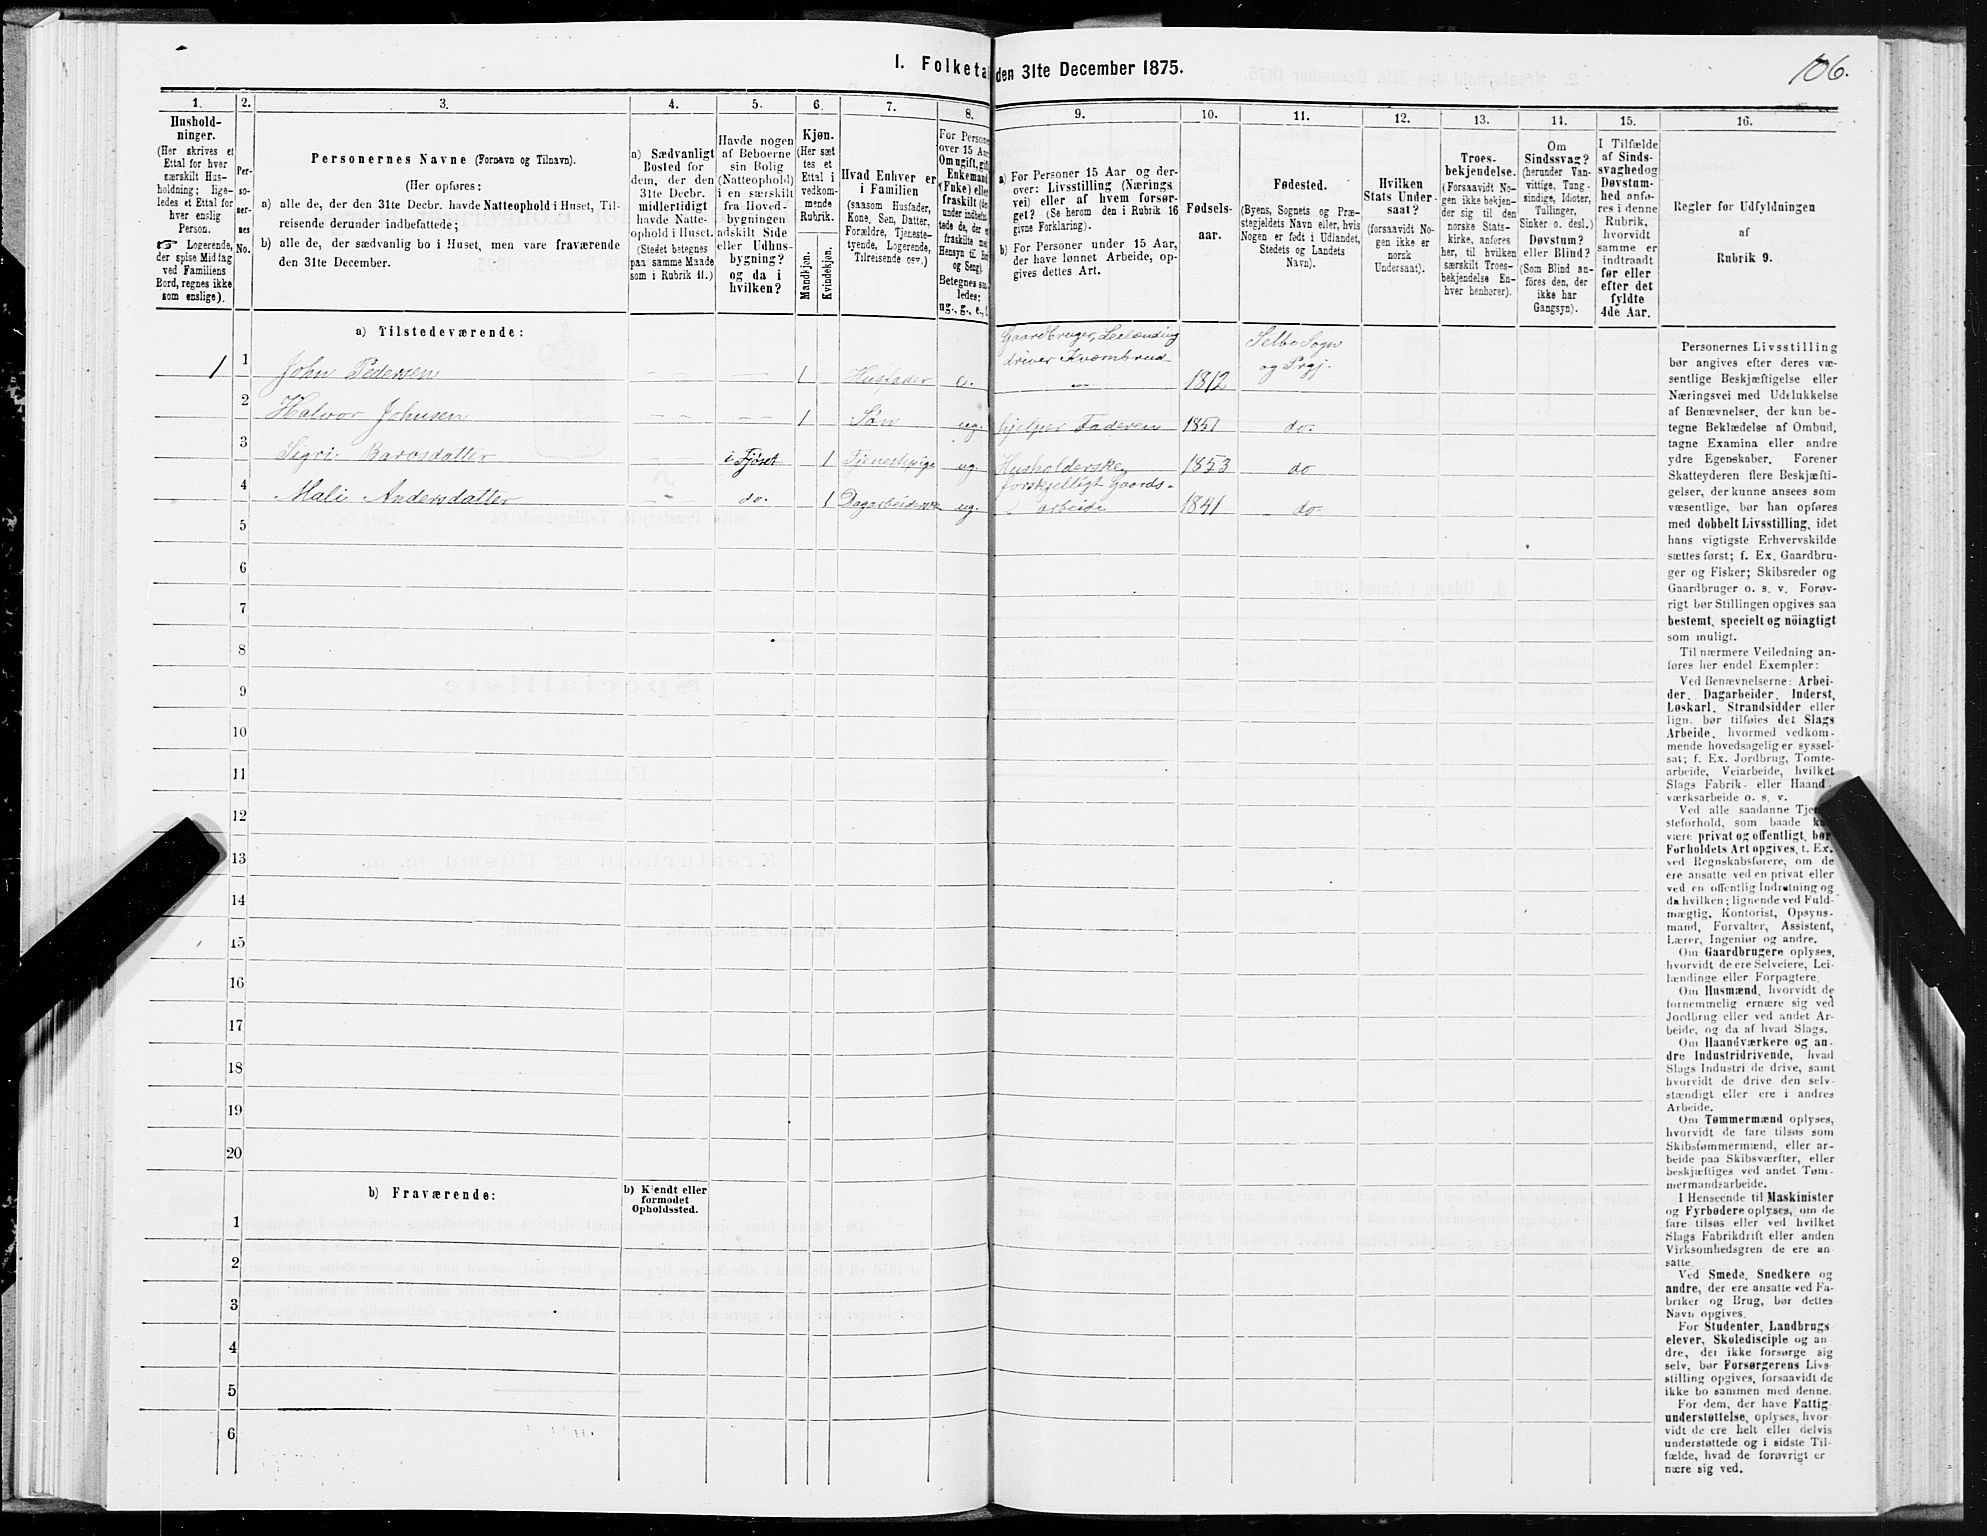 I. Folketa den 31te December 1875.
106.
1.
Hushold-
ninger.
(Her skrives et
Ettal for hver
særskilt Hus-
holdning; lige-
ledes et Ettal for
hver enslig
Person.
☞ Logerende,
der spise Middag
ved Familiens
Bord, regnes ikke
som enslige).
2.
Per-
so-
ner-
nes
No.
3.
Personernes Navne (Fornavn og Tilnavn).
(Her opføres:
a) alle de, der den 31te Decbr. havde Natteophold i Huset, Til-
reisende derunder indbefattede;
b) alle de, der sædvanlig bo i Huset, men vare fraværende
den 31te December.
4.
a) Sædvanligt
Bosted for
dem, der den
31te Decbr.
midlertidigt
havde Natte-
ophold i Huset.
(Stedet betegnes
paa samme Maade
som i Rubrik 11.)
5.
Havde nogen
af Beboerne
sin Bolig
(Natteophold)
i en særskilt
fra Hoved-
bygningen
adskilt Side
eller Udhus-
bygning?
og da i
hvilken?
6.
Kjøn.
(Her sæt
tes et
Ettal i
vedkom-
mende
Rubrik.
Mandkjøn.
Kvindekjøn.
7.
Hvad Enhver er
i Familien
(saasom Husfader,
Kone, Søn, Datter,
Forældre, Tjeneste-
tyende, Logerende,
Tilreisende osv.)
8.
For Persone
over 15 Aar
Om ugift, gift
Enkemand
(Enke) eller
fraskilt (der
under indbefat-
tede de, der er
fraskilte med
Hensyn til Bor
og Seng).
Betegnes saa-
ledes:
ug., g., e., f.
9.
a) For Personer 15 Aar og der-
over: Livsstilling (Nærings
vei) eller af hvem forsør-
get? (Se herom den i Rubrik 16
givne Forklaring).
b) For Personer under 15 Aar,
der have lønnet Arbeide, op-
gives dettes Art.
10.
Fødsels-
aar.
11.
Fødested.
(Byens, Sognets og Præ-
stegjeldets Navn eller, hvis
Nogen er født i Udlandet,
Stedets og Landets
Navn).
12.
Hvilken
Stats Under-
saat?
(forsaavidt No-
gen ikke er
norsk
Undersaat).
13.
Troes-
bekjendelse.
(Forsaavidt No-
gen ikke bekjen-
der sig til den
norske Stats-
kirke, anføres
her, til hvilken
særskilt Troes-
bekjendelse En-
hver henhører).
14.
Om
Sindssvag?
(herunder Van-
vittige, Tung-
sindige, Idioter,
Tullinger,
Sinker o. desl.)
Døvstum?
eller Blind?
(Som Blind an-
føres den, der
ikke har
Gangsyn).
15.
I Tilfælde
af Sinds-
svaghed og
Døvstum-
hed anfø-
res i denne
Rubrik,
hvorvidt
samme er
indtraadt
før eller
efter det
fyldte
4de Aar.
16.
Regler for Udfyldningen
af
Rubrik 9.
a) Tilstedeværende:
Gaardbruger, Leilænding
driver Kværnbrud
Selbo Sogn
og Prgj.
1 1 John Pedersen — — 1 Husfader e. — 1812
2 Halvor Johnsen — — 1 Søn ug. hjelper Faderen 1851 do.
3 Sigri Barosdatter i Fjøset 1 Tjenestepige ug. Husholderske, 1853 do
forskjelligt Gaards-
4 Mali Andersdatter do. 1 Dagarbeiderske ug. arbeide 1841 do
5
6
7
8
9
10
11
12
13
14
15
16
17
18
19
20
b) Fraværende:
b) Kjendt eller
formodet
Opholdssted.
1
2
3
4
5
6
Personernes Livsstilling
bør angives efter deres væ-
sentlige Beskjæftigelse eller
Næringsvei med Udelukkelse
af Benævnelser, der kun be-
tegne Beklædelse af Ombud,
tagne Examina eller andre
ydre Egenskaber. Forener
Skatteyderen flere Beskjæfti-
gelser, der kunne ansees som
væsentlige, bør han opføres
med dobbelt Livsstilling, idet
hans vigtigste Erhvervskilde
sættes først; f. Ex. Gaardbru-
ger og Fisker; Skibsreder og
Gaardbruger o. s. v. Forøv-
rigt bør Stillingen opgives saa
bestemt, specielt og nöiagtigt
som muligt.
Til nærmere Veiledning an-
føres her endel Exempler:
Ved Benævnelserne: Arbei-
der, Dagarbeider, Inderst,
Løskarl, Strandsidder eller
lign. bør tilføies det Slags
Arbeide, hvormed vedkom-
mende hovedsagelig er syssel-
sat; f. Ex. Jordbrug, Tomte-
arbeide, Veiarbeide, hvilket
Slags Fabrik- eller Haand-
værksarbeide o. s. v.
Ved alle saadanne Tjene-
steforhold, som baade kan
være privat og offentligt, bør
Forholdets Art opgives, f. Ex.
ved Regnskabsførere, om de
ere ansatte ved en privat eller
ved en offentlig Indretning og
da hvilken; lignende ved Fuld-
mægtig, Kontorist, Opsyns-
mand, Forvalter, Assistent,
Lærer, Ingeniør og andre.
Om Gaardbrugere oplyses,
hvorvidt de ere Selveiere, Lei-
lændinge eller Forpagtere.
Om Husmænd, hvorvidt de
fornemmelig ernære sig ved
Jordbrug eller ved andet Ar-
beide, og da af hvad Slags.
Om Haandværkere og an-
dre Industridrivende, hvad
Slags Industri de drive, samt
hvorvidt de drive den selv-
stændigt eller ere i andres
Arbeide.
Om Tømmermænd oplyses,
hvorvidt de fare tilsøs som
Skibstømmermænd, eller ar-
beide paa Skibsværfter, eller
beskjæftiges ved andet Tøm-
mermandsarbeide.
I Henseende til Maskinister
og Fyrbødere oplyses, om de
fare tilsøs eller ved hvilket
Slags Fabrikdrift eller anden
Virksomhedsgren de ere an-
satte.
Ved Smede, Snedkere og
andre, der ere ansatte ved Fa-
briker og Brug, bør dettes
Navn opgives.
For Studenter, Landbrugs
elever, Skoledisciple og an-
dre, der ikke forsørge sig
selv, bør Forsørgerens Livs-
stilling opgives, forsaavidt de
ikke bo sammen med denne.
For dem, der have Fattig-
understøttelse, oplyses, hvor-
vidt de ere helt eller delvis
understøttede og i sidste Til-
fælde, hvad de forøvrigt er-
nære sig ved.